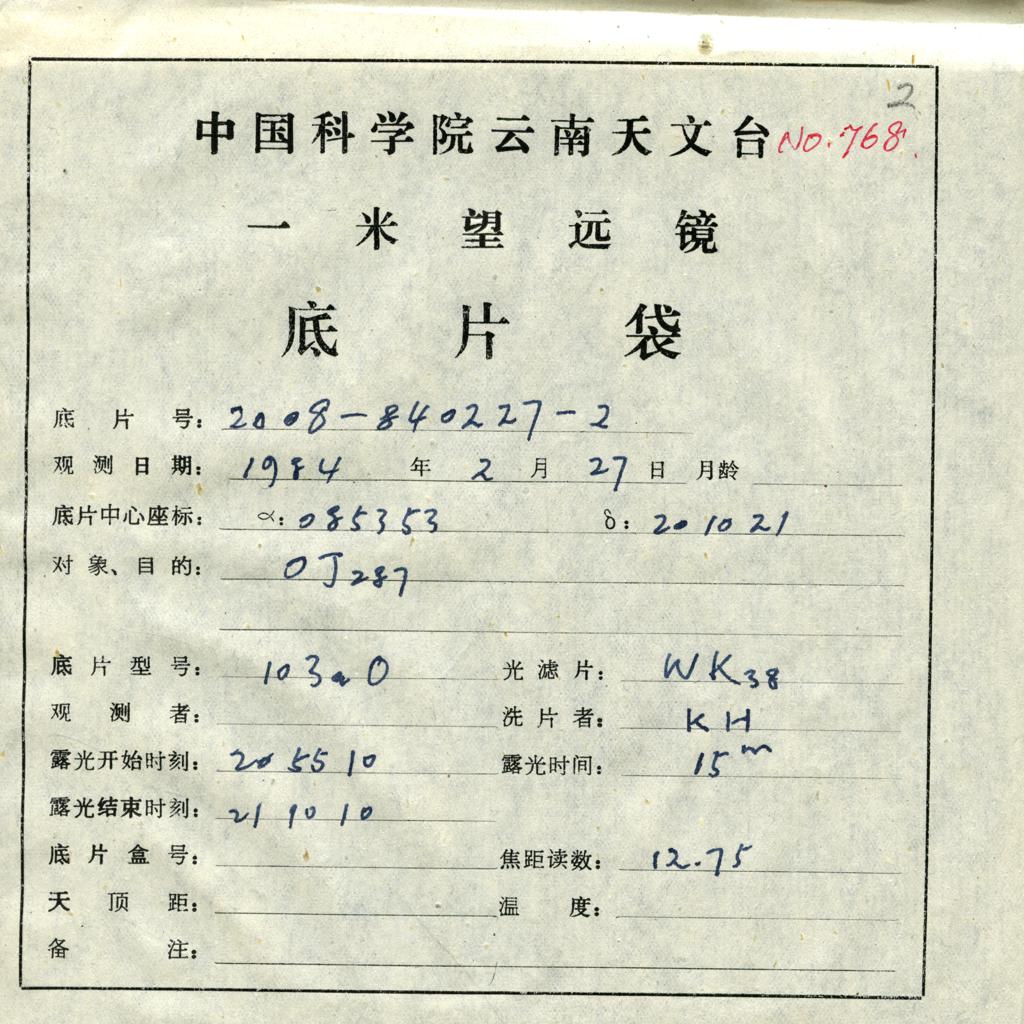 2
中国科学院云南天文台 NO.768
一米望远镜
底片袋
底片号: 2008-840227-2
观测日期: 1984 年 2 月 27 日 月龄
底片中心座标: α: 085353 δ: 201021
对象、目的: OJ287
底片型号: 103aO 光滤片: WK38
观测者: 洗片者: KH
露光开始时刻: 205510 露光时间: 15m
露光结束时刻: 211010
底片盒号: 焦距读数: 12.75
天顶距: 温度:
备注: